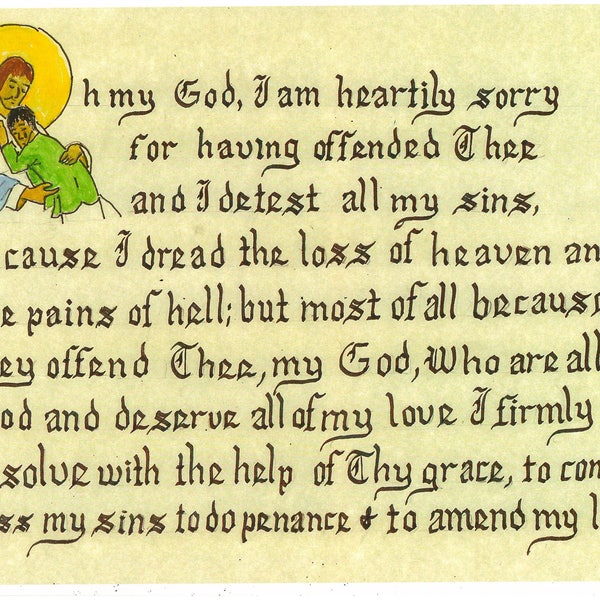 h my God, I am heartily sorry
for having offended Thee
and I detest all my sins,
cause I dread the loss of heaven an
e pains of hell; but most of all because
ey offend Thee, my God, Who are all
od and deserve all of my love I firmly
solve with the help of Thy grace, to con
ss my sins to do penance & to amend my l